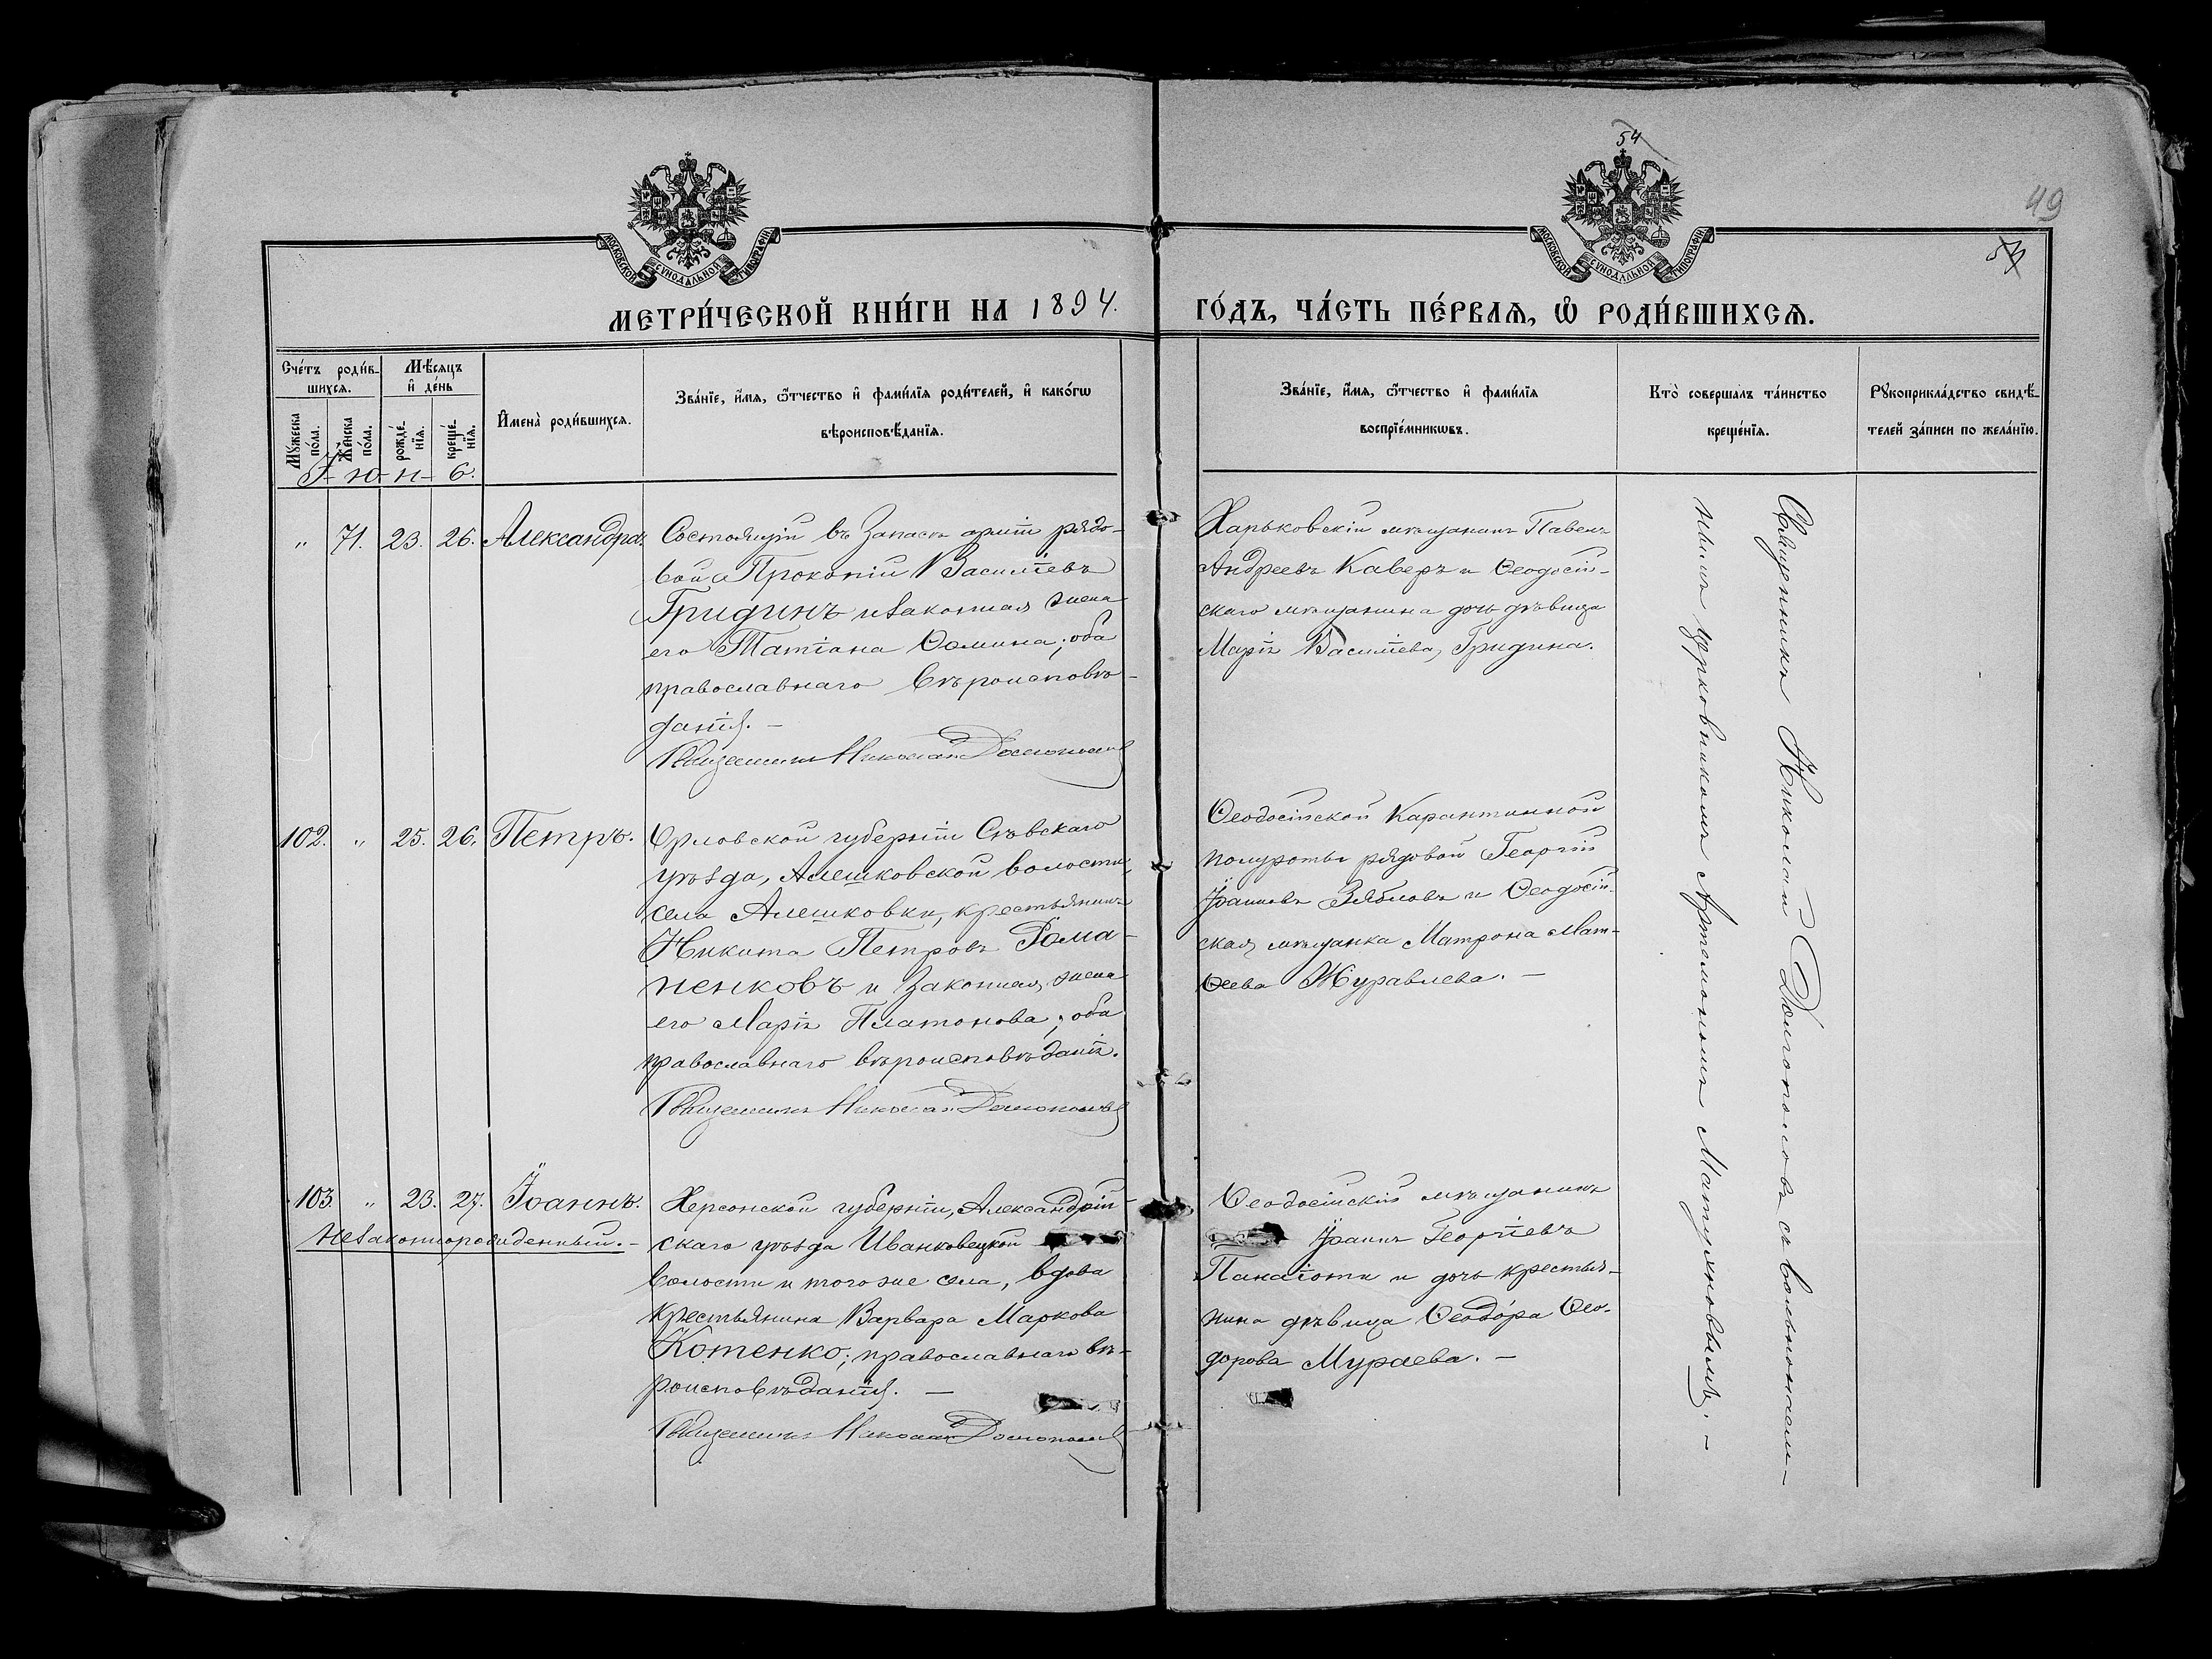 54
49
53
МОСКОВСКОЙ СѴНОДАЛЬНОЙ ТИПОГРАФІИ
МОСКОВСКОЙ СѴНОДАЛЬНОЙ ТИПОГРАФІИ
МЕТРИ́ЧЕСКОЙ КНИ́ГИ НА 1894.
ГО́ДЪ, ЧА́СТЬ ПЕ́РВАѦ, Ѽ РОДИ́ВШИХСѦ.
Сче́тъ роди́в-
шихсѧ.
Мꙋжеска по́ла.
Же́нска по́ла.
Мѣ́сѧцъ
и҆ де́нь
рожде́-
нїѧ.
креще́-
нїѧ.
И҆мена̀ роди́вшихсѧ.
Зва́нїе, и҆́мѧ, ѻ҆́тчество и҆ фами́лїѧ роди́телей, и҆ како́гѡ
вѣроисповѣ́данїѧ.
Зва́нїе, и҆́мѧ, ѻ҆́тчество и҆ фами́лїѧ
воспрїе́мникѡвъ.
Кто̀ соверша́лъ та́инство
креще́нїѧ.
Рꙋкоприкла́дство свидѣ́-
телей за́писи по жела́нїю.
І-ю-н-ь.
" 71. 23. 26. Александра.
Состоящій въ Запасѣ арміи рядо-
вой Прокопій Васильевъ
Гридинъ и законная жена
его Татіана Ѳомина; оба
православнаго вѣроисповѣ-
данія. -
Священникъ Николай Долгополовъ
Харьковскій мѣщанинъ Павелъ
Андреевъ Каверъ и Ѳеодосій-
скаго мѣщанина дочь дѣвица
Марія Васильева Гридина.
102. " 25. 26. Петръ.
Орловской губерніи Сѣвскаго
уѣзда, Алешковской волости,
села Алешковки, крестьянинъ
Никита Петровъ Рома-
ненковъ и законная жена
его Марія Платонова; оба
православнаго вѣроисповѣданія.
Священникъ Николай Долгополовъ
Ѳеодосійской Карантинной
полуроты рядовой Георгій
Іоанновъ Зябловъ и Ѳеодосій-
ская мѣщанка Матрона Мат-
ѳеева Журавлева. -
103. " 23. 27. Іоаннъ.
Незаконнорожденный. -
Херсонской губерніи, Александрій-
скаго уѣзда Иванковецкой
волости и того же села, вдова
крестьянина Варвара Маркова
Котенко; православнаго вѣ-
роисповѣданія. -
Священникъ Николай Долгополовъ
Ѳеодосійскій мѣщанинъ
Іоаннъ Георгіевъ
Панаіоти и дочь крестья-
нина дѣвица Ѳеодора Ѳео-
дорова Мураева. -
Священникъ Николай Долгополовъ съ вольнонаем-
нымъ церковникомъ Артемономъ Матухновымъ. -